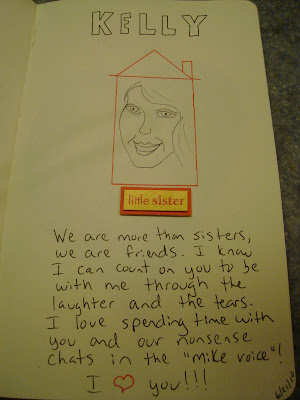 KELLY
little sister
We are more than sisters,
we are friends. I know
I can count on you to be
with me through the
laughter and the tears.
I love spending time with
you and our nonsense
chats in the "mike voice"!
I ♡ you!!!